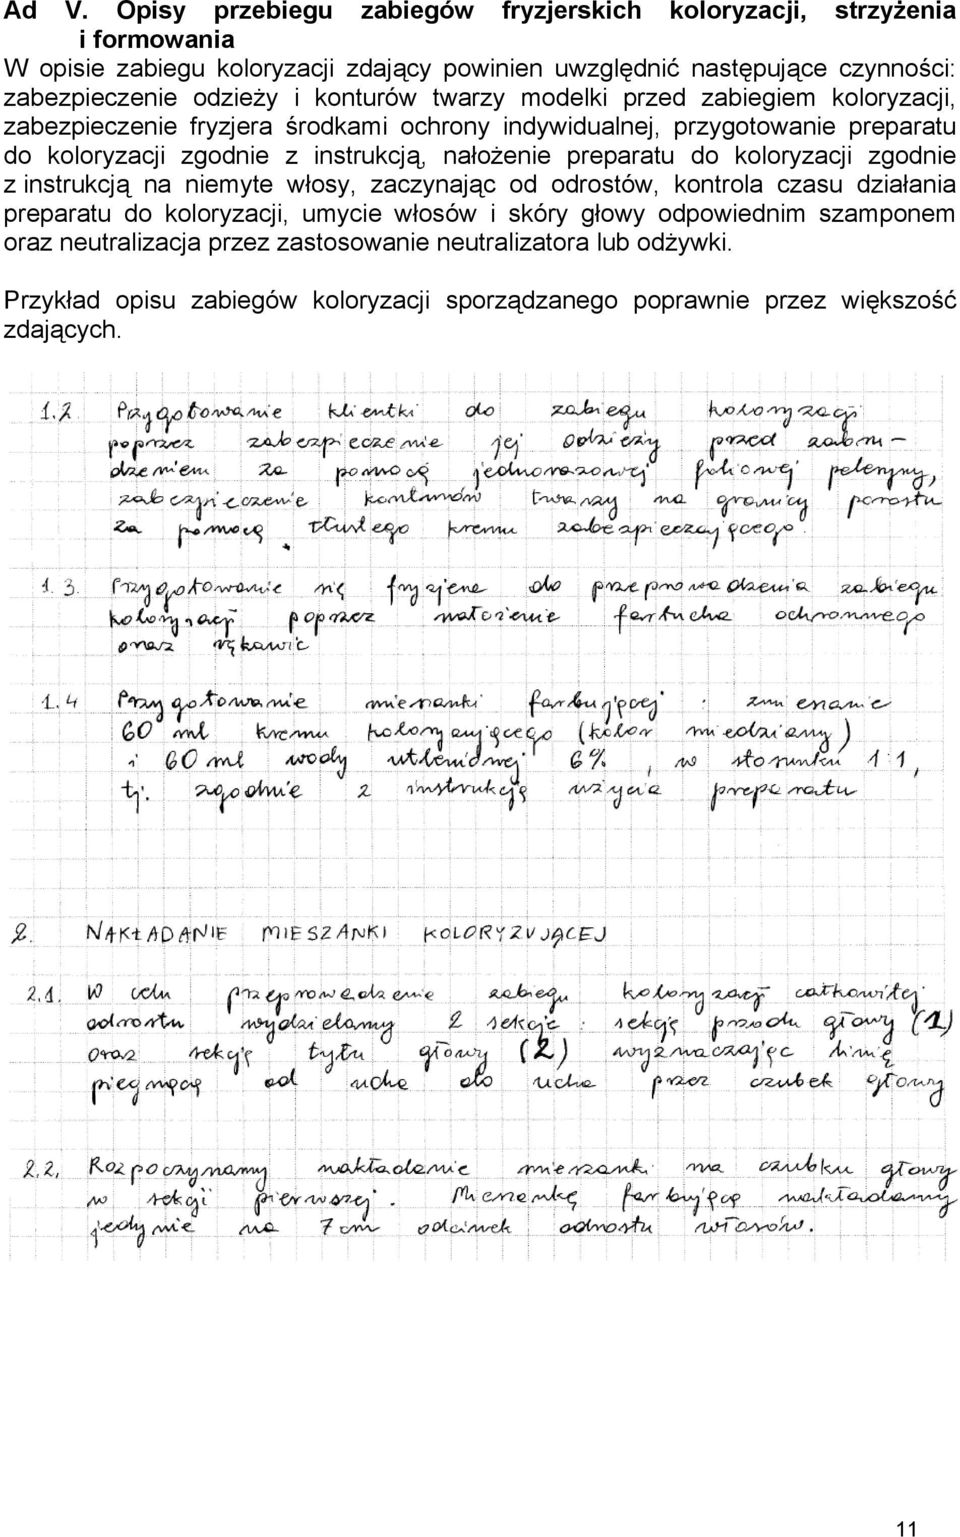 Ad V. Opisy przebiegu zabiegów fryzjerskich koloryzacji, strzyżenia
i formowania
W opisie zabiegu koloryzacji zdający powinien uwzględnić następujące czynności:
zabezpieczenie odzieży i konturów twarzy modelki przed zabiegiem koloryzacji,
zabezpieczenie fryzjera środkami ochrony indywidualnej, przygotowanie preparatu
do koloryzacji zgodnie z instrukcją, nałożenie preparatu do koloryzacji zgodnie
z instrukcją na niemyte włosy, zaczynając od odrostów, kontrola czasu działania
preparatu do koloryzacji, umycie włosów i skóry głowy odpowiednim szamponem
oraz neutralizacja przez zastosowanie neutralizatora lub odżywki.
Przykład opisu zabiegów koloryzacji sporządzanego poprawnie przez większość
zdających.
1.2 Przygotowanie klientki do zabiegu koloryzacji
poprzez zabezpieczenie jej odzieży przed zabru-
dzeniem za pomocą jednorazowej foliowej peleryny,
zabezpieczenie konturów twarzy na granicy porostu
za pomocą tłustego kremu zabezpieczającego.
1.3. Przygotowanie się fryzjera do przeprowadzenia zabiegu
koloryzacji poprzez nałożenie fartucha ochronnego
oraz rękawic
1.4 Przygotowanie mieszanki farbującej : zmieszanie
60 ml kremu koloryzującego (kolor miedziany)
i 60 ml wody utlenionej 6%, w stosunku 1 1,
tj. zgodnie z instrukcją użycia preparatu
2. NAKŁADANIE MIESZANKI KOLORYZUJĄCEJ
2.1. W celu przeprowadzenie zabiegu koloryzacji całkowitej
odrostu wydzielamy 2 sekcje : sekcję przodu głowy (1)
oraz sekcję tyłu głowy (2) wyznaczając linię
biegnącą od ucha do ucha przez czubek głowy
2.2. Rozpoczynamy nakładanie mieszanki na czubku głowy
w sekcji pierwszej. Mieszankę farbującą nakładamy
jedynie na 7 cm odcinek odrostu włosów.
11